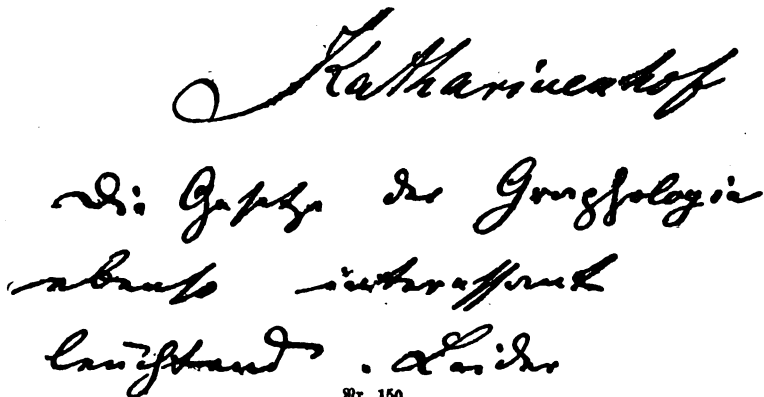 Katharinenhof
Die Gesetze der Graphologie
ebenso interessant
leuchtend. Leider
Nr. 150